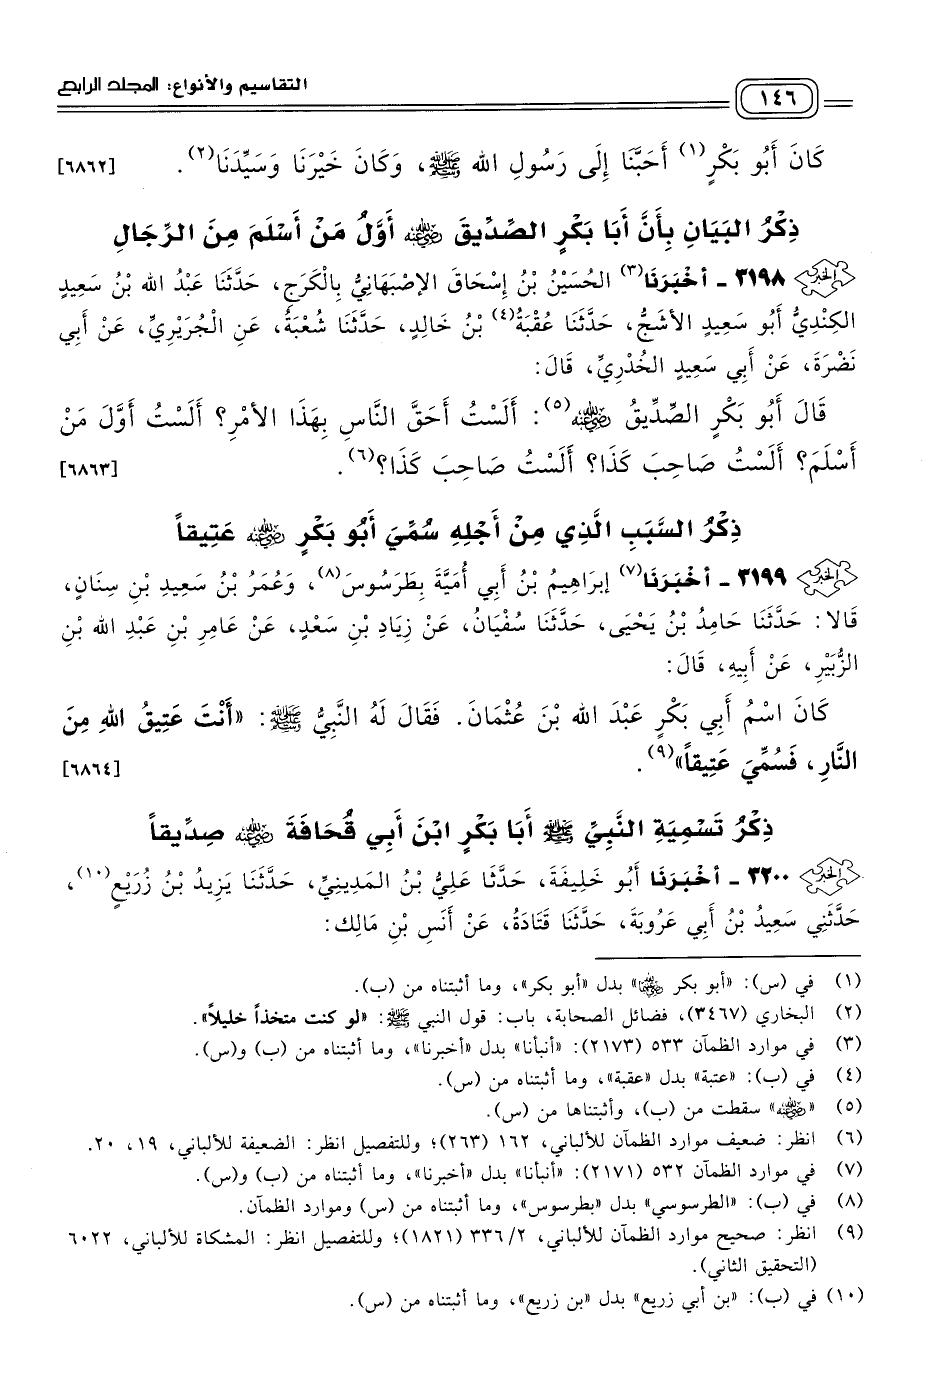 ١٤٦ التقاسيم والأنواع: المجلد الرابع
كَانَ أَبُو بَكْرٍ(١) أَحَبَّنَا إِلَى رَسُولِ الله ﷺ، وَكَانَ خَيْرَنَا وَسَيِّدَنَا(٢). [٦٨٦٢]
ذِكْرُ البَيَانِ بِأَنَّ أَبَا بَكْرٍ الصِّدِّيقَ رضي الله عنه أَوَّلُ مَنْ أَسْلَمَ مِنَ الرِّجَالِ
الخبر ٣١٩٨ - أخْبَرَنَا(٣) الحُسَيْنُ بْنُ إِسْحَاقَ الإصْبَهَانِيُّ بِالْكَرَجِ، حَدَّثَنَا عَبْدُ الله بْنُ سَعِيدٍ
الكِنْدِيُّ أَبُو سَعِيدٍ الأشَجُّ، حَدَّثَنَا عُقْبَةُ(٤) بْنُ خَالِدٍ، حَدَّثَنَا شُعْبَةُ، عَنِ الْجُرَيْرِيِّ، عَنْ أَبِي
نَضْرَةَ، عَنْ أَبِي سَعِيدٍ الخُدْرِيِّ، قَالَ:
قَالَ أَبُو بَكْرٍ الصِّدِّيقُ رضي الله عنه(٥): أَلَسْتُ أَحَقَّ النَّاسِ بِهَذَا الأمْرِ؟ أَلَسْتُ أَوَّلَ مَنْ
أَسْلَمَ؟ أَلَسْتُ صَاحِبَ كَذَا؟ أَلَسْتُ صَاحِبَ كَذَا؟(٦). [٦٨٦٣]
ذِكْرُ السَّبَبِ الَّذِي مِنْ أَجْلِهِ سُمِّيَ أَبُو بَكْرٍ رضي الله عنه عَتِيقاً
الخبر ٣١٩٩ - أخْبَرَنَا(٧) إبْرَاهِيمُ بْنُ أَبِي أُمَيَّةَ بِطَرَسُوسَ(٨)، وَعُمَرُ بْنُ سَعِيدِ بْنِ سِنَانٍ،
قَالا: حَدَّثَنَا حَامِدُ بْنُ يَحْيَى، حَدَّثَنَا سُفْيَانُ، عَنْ زِيَادِ بْنِ سَعْدٍ، عَنْ عَامِرِ بْنِ عَبْدِ الله بْنِ
الزُّبَيْرِ، عَنْ أَبِيهِ، قَالَ:
كَانَ اسْمُ أَبِي بَكْرٍ عَبْدَ الله بْنَ عُثْمَانَ. فَقَالَ لَهُ النَّبِيُّ ﷺ: «أَنْتَ عَتِيقُ اللهِ مِنَ
النَّارِ، فَسُمِّيَ عَتِيقاً»(٩). [٦٨٦٤]
ذِكْرُ تَسْمِيَةِ النَّبِيِّ ﷺ أَبَا بَكْرٍ ابْنَ أَبِي قُحَافَةَ رضي الله عنه صِدِّيقاً
الخبر ٣٢٠٠ - أخْبَرَنَا أَبُو خَلِيفَةَ، حَدَّثَنا عَلِيُّ بْنُ المَدِينِيِّ، حَدَّثَنَا يَزِيدُ بْنُ زُرَيْعٍ(١٠)،
حَدَّثَنِي سَعِيدُ بْنُ أَبِي عَرُوبَةَ، حَدَّثَنَا قَتَادَةُ، عَنْ أَنَسِ بْنِ مَالِك:
(١) في (س): «أبو بكر رضي الله عنه» بدل «أبو بكر»، وما أثبتناه من (ب).
(٢) البخاري (٣٤٦٧)، فضائل الصحابة، باب: قول النبي ﷺ: «لو كنت متخذاً خليلاً».
(٣) في موارد الظمآن ٥٣٣ (٢١٧٣): «أنبأنا» بدل «أخبرنا»، وما أثبتناه من (ب) و(س).
(٤) في (ب): «عتبة» بدل «عقبة»، وما أثبتناه من (س).
(٥) «رضي الله عنه» سقطت من (ب)، وأثبتناها من (س).
(٦) انظر: ضعيف موارد الظمآن للألباني، ١٦٢ (٢٦٣)؛ وللتفصيل انظر: الضعيفة للألباني، ١٩، ٢٠.
(٧) في موارد الظمآن ٥٣٢ (٢١٧١): «أنبأنا» بدل «أخبرنا»، وما أثبتناه من (ب) و(س).
(٨) في (ب): «الطرسوسي» بدل «بطرسوس»، وما أثبتناه من (س) وموارد الظمآن.
(٩) انظر: صحيح موارد الظمآن للألباني، ٢/ ٣٣٦ (١٨٢١)؛ وللتفصيل انظر: المشكاة للألباني، ٦٠٢٢
(التحقيق الثاني).
(١٠) في (ب): «بن أبي زريع» بدل «بن زريع»، وما أثبتناه من (س).